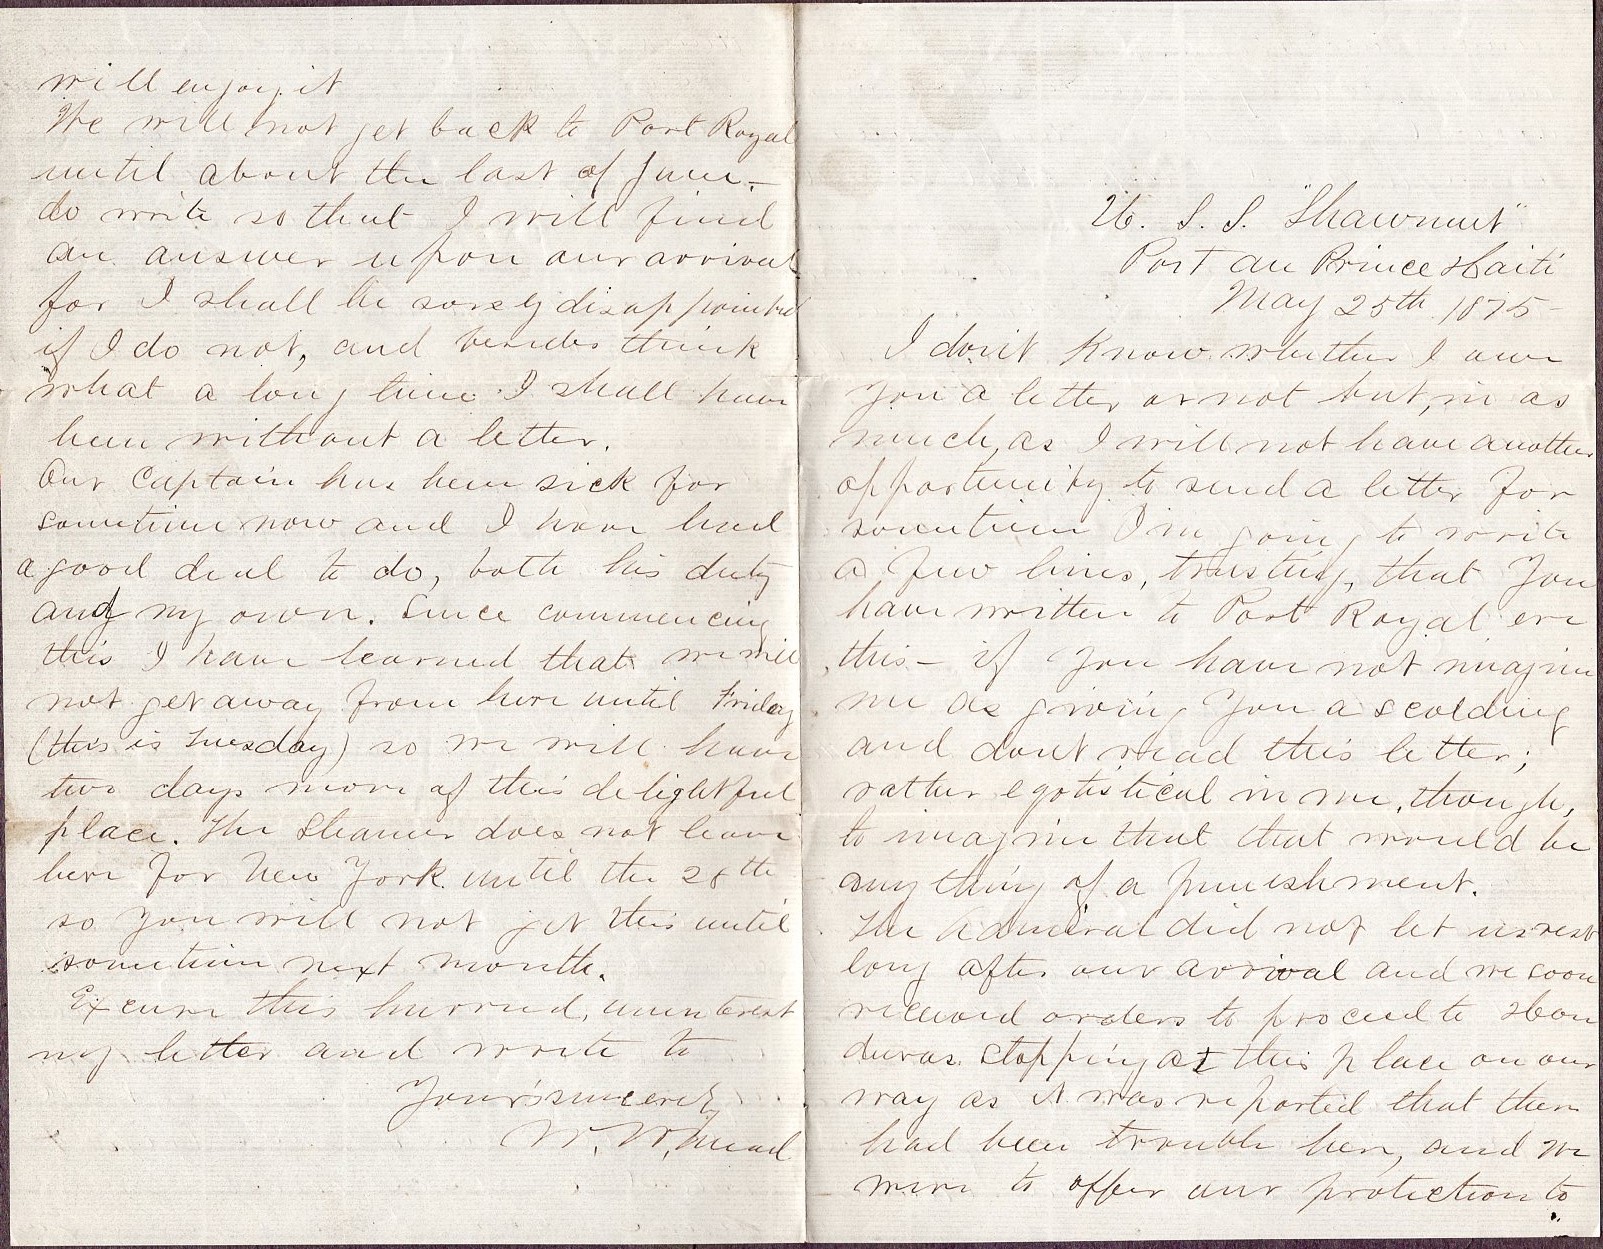 U. S. S. "Shawmut"
Port au Prince Haiti
May 25th 1875-
I don't know whether I owe
you a letter or not but, in as
much, as I will not have another
opportunity to send a letter for
sometime I'm going to write
a few lines, trusting, that you
have written to Port Royal ere
this - if you have not imagine
me as giving you a scolding
and dont read this letter;
rather egotistical in me, though,
to imagine that that would be
anything of a punishment.
The Admiral did not let us rest
long after our arrival and we soon
received orders to proceed to Hon
duras. stopping at this place on our
way as it was reported that there
had been trouble here, and we
were to offer our protection to
will enjoy it
We will not get back to Port Royal
until about the last of June.-
do write so that I will find
an answer upon our arrival
for I shall be sorely disappointed
if I do not, and besides think
what a long time I shall have
been without a letter.
Our Captain has been sick for
sometime now and I have had
a good deal to do, both his duty
and my own. Since commencing
this I have learned that we will
not get away from here until Friday
(this is Tuesday) so we will have
two days more of this delightful
place. The Steamer does not leave
here for New York until the 28th
so you will not get this until
sometime next month.
Excuse this hurried, uninterest
ing letter and write to
Your's sincerely
W. W. Mead